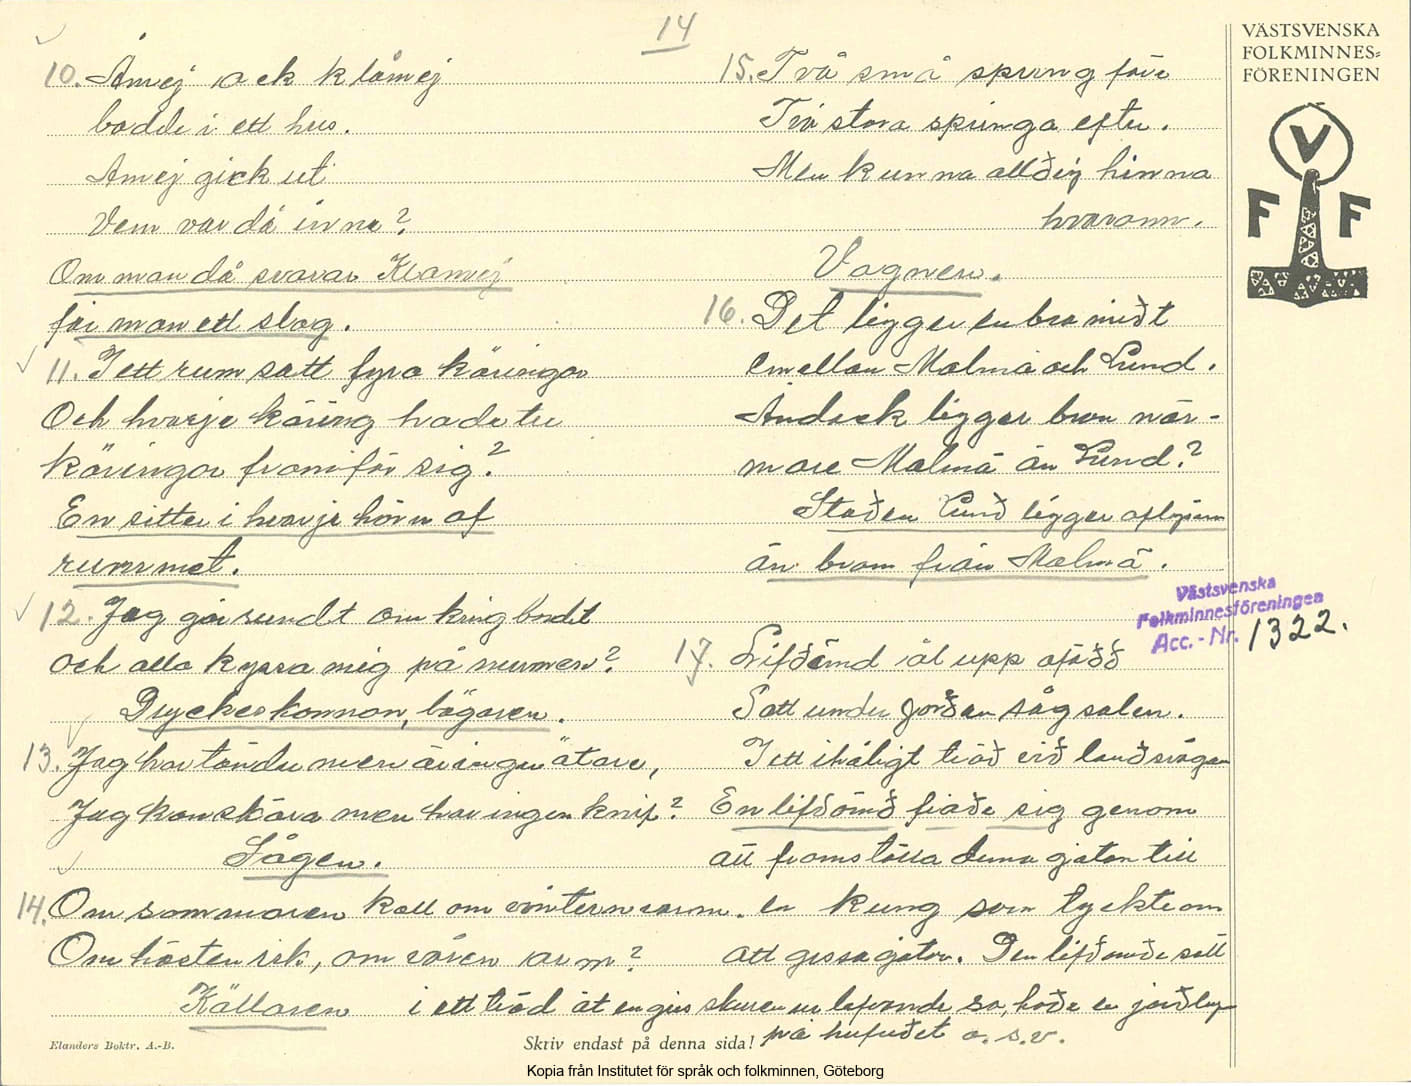 14
10. Amej ock klåmej
bodde i ett hus.
Amej gick ut
Vem var då inne?
Om man då svarar Klamej
får man ett slag.
11. I ett rum satt fyra käringar
Och hvarje käring hade tre
käringar framför sig?
En sitter i hvarje hörn af
rummet.
12. Jag går rundt omkring bordet
och alla kyssa mig på munnen?
Dryckeskannan, bägaren.
13. Jag har tänder men är ingen ätare,
Jag kan skära men har ingen knif?
Sågen.
14. Om sommaren kall om vintern varm.
Om hösten rik, om våren arm?
Källaren
15. Två små sprung före
Två stora springa efter.
Men kunna alldrig hinna
hvarann.
Vagnen.
16. Det ligger en bro midt
emellan Malmö och Lund.
Ändock ligger bron när-
mare Malmö än Lund?
Staden Lund ligger
än bron från Malmö.
17. Lifdömd åt upp ofödd
Satt under jorden såg salen.
I ett ihåligt träd vid landsvägen
En lifdömd friade sig genom
att framställa denna gåtan till
en kung som tyckte om
att gissa gåtor. Den lifdömde satt
i ett träd åt en gris skuren ur lefvande so, hade en
på hufudet o.s.v.
VÄSTSVENSKA
FOLKMINNES=
FÖRENINGEN
V
F F
Västsvenska
Folkminnesföreningen
Acc. - Nr. 1322.
Elanders Boktr. A.-B.
Skriv endast på denna sida!
Kopia från Institutet för språk och folkminnen, Göteborg